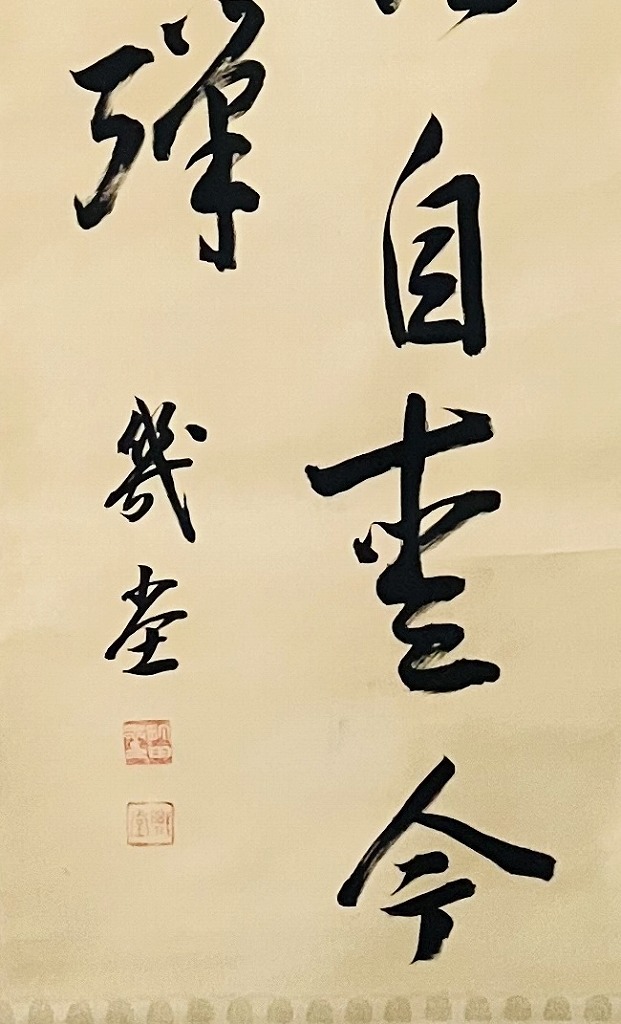 自愛今
彈
幾堂